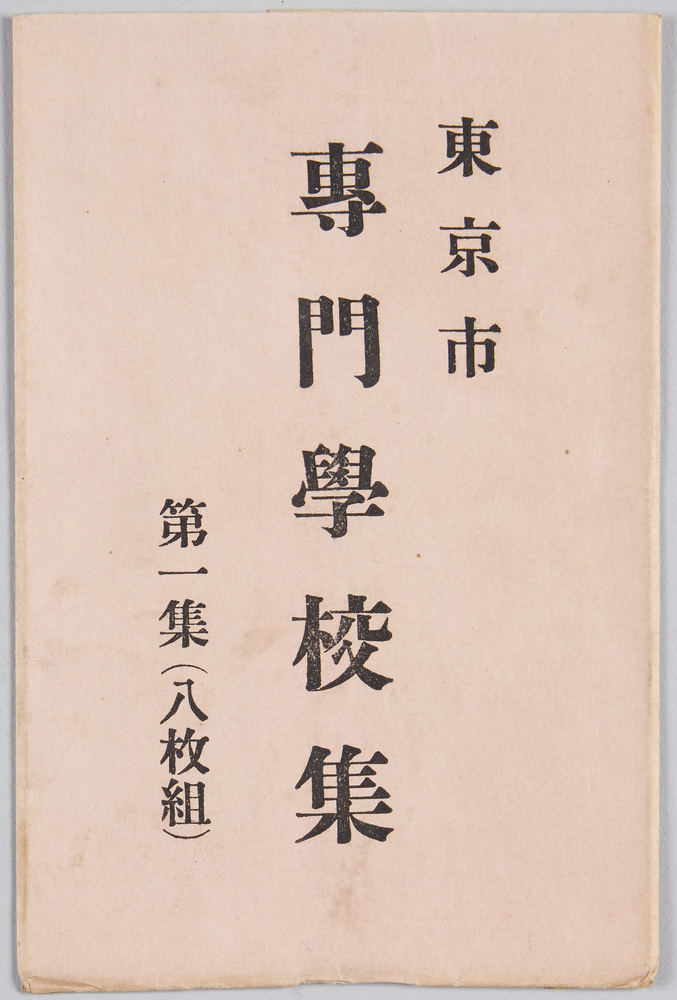 東京市
專門學校集
第一集（八枚組）